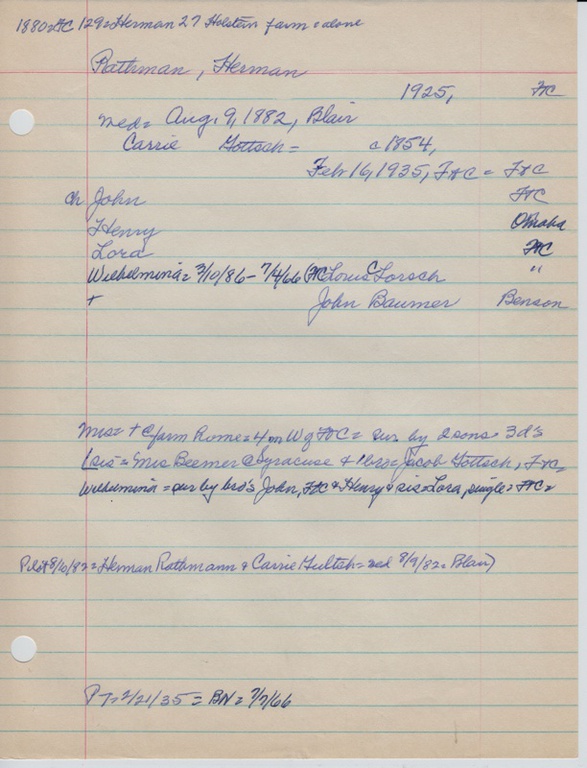 1880=FC 129=Herman 27 Holstein farm = alone
Rathman, Herman
1925, FC
med= Aug. 9, 1882, Blair
Carrie Gottsch = c1854,
Feb 16, 1935, F+C = F+C
ch John F+C
Henry Omaha
Lora FC
Wilhelmina = 3/10/86 - 7/4/66 (FC Louis C Lorsch "
+ John Baumer Benson
Mrs= + @ farm home = 4 m W of F+C = sur by 2 sons + 3 d's
(sis = Mrs Beemer @ Syracuse + 1 bro = Jacob Gottsch, F+C=
Wilhelmina = sur by bro's John, F+C + Henry + sis = Lora, single = F+C=
Pilot 8/10/82 = Herman Rathmann + Carrie Gultsh = med 8/9/82 = Blair)
PT= 2/21/35 = BN = 7/7/66